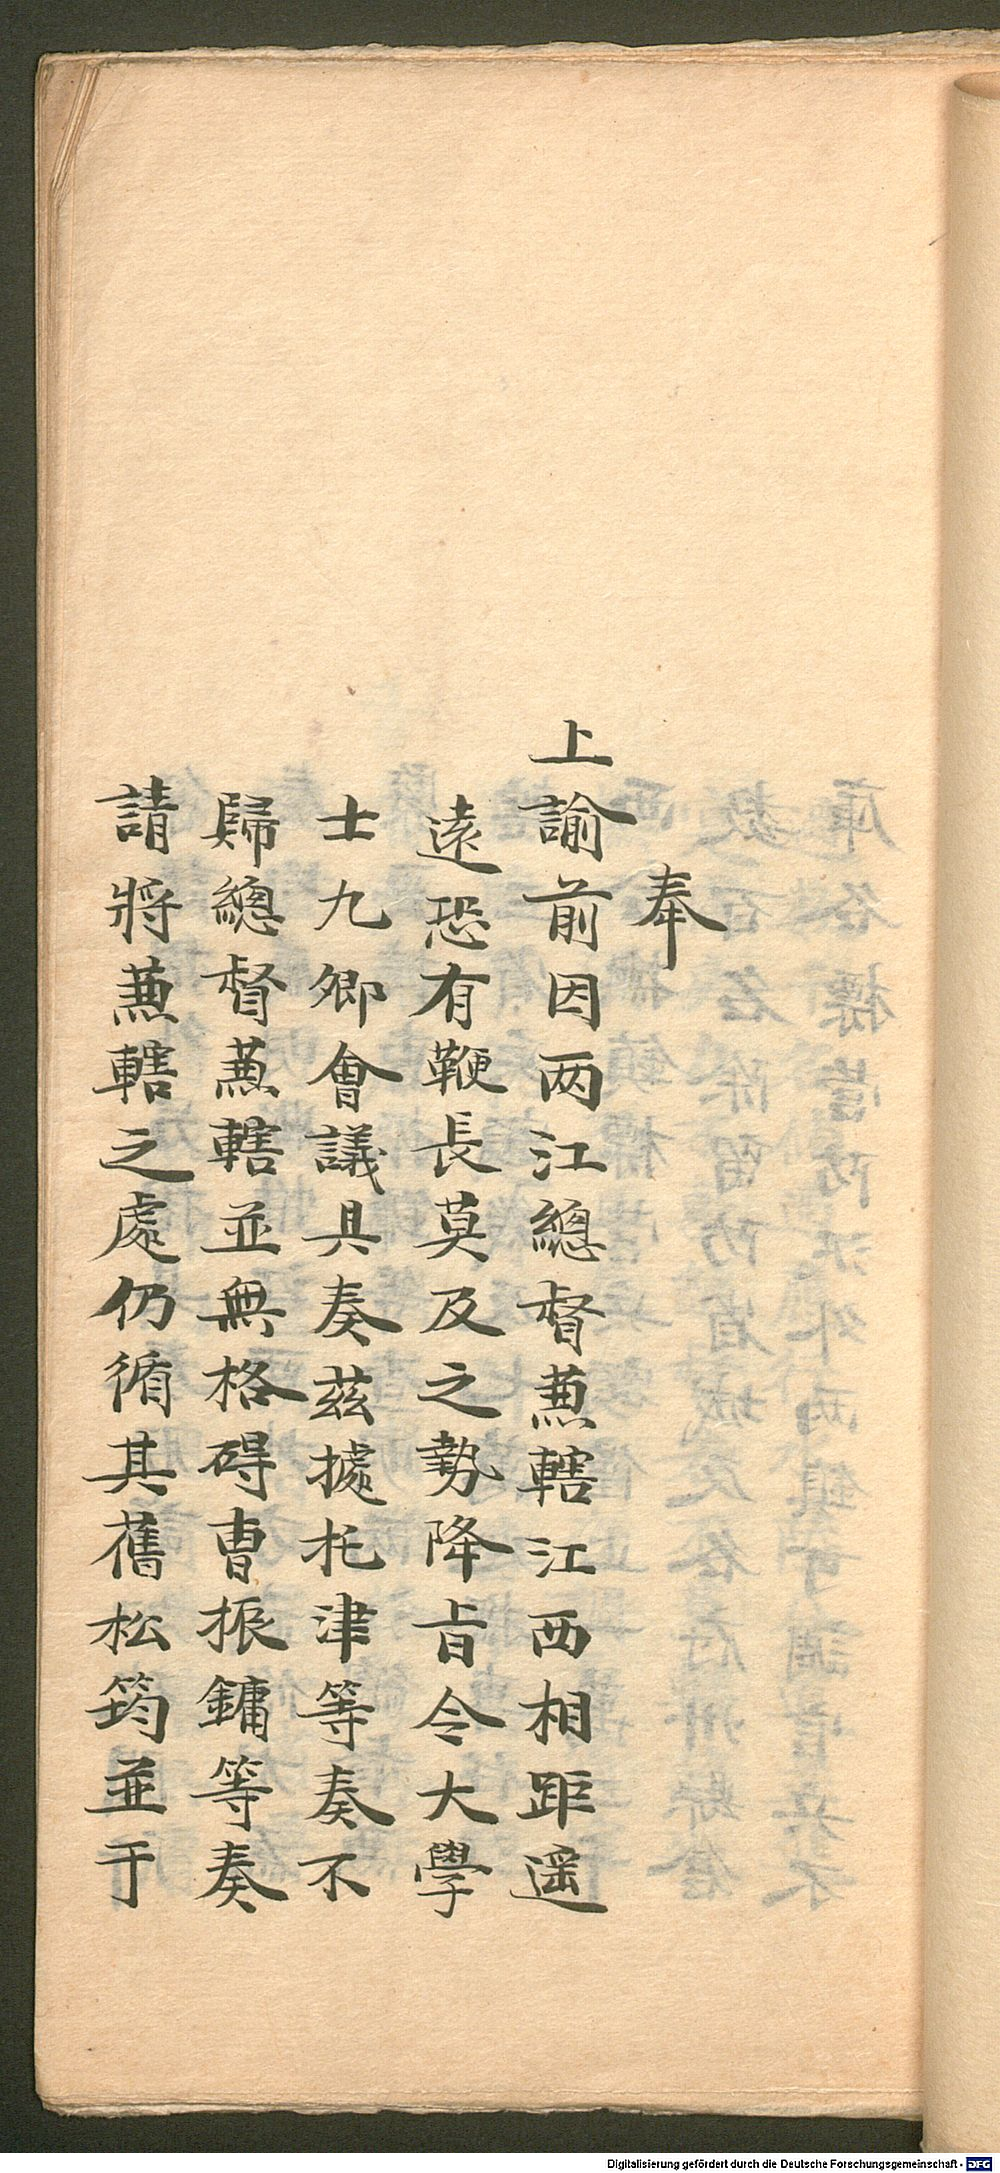 奉
上諭前因两江總督蕙轄江西相距遥
遠恐有鞭長莫及之勢降旨令大學
士九卿會議具奏茲據托津等奏不
歸總督蕙轄並無格碍曹振鏞等奏
請將蕙轄之處仍循其舊松筠並于
Digitalisierung gefördert durch die Deutsche Forschungsgemeinschaft - DFG